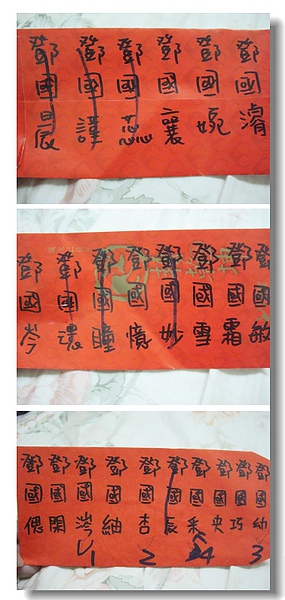 鄧國濬
鄧國婉
鄧國襄
鄧國芯
鄧國謹
鄧國晨
鄧國敏
鄧國霜
鄧國雪
鄧國妙
鄧國憶
鄧國瞳
鄧國環
鄧國岑
鄧國幼
鄧國巧
鄧國央
鄧國采
鄧國辰
鄧國杏
鄧國紬
鄧國涔
鄧國閑
鄧國偲
1 2 4 3